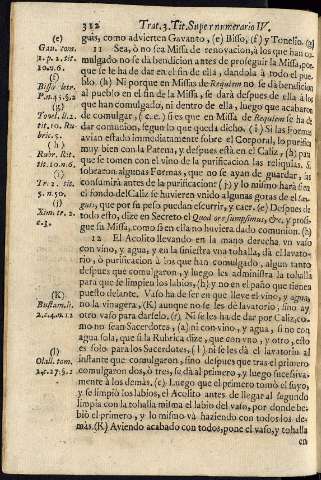 312 Trat. 3. Tit. Supernumerario IV.
(e)
Gau. tom.
2. p. 2. tit.
10. n. 6.
(f)
Bisso letr.
P. n. 45. §. 2
(g)
Tonel. li. 2.
tit. 10. Ru-
bric. 5.
(h)
Rubr. Rit.
tit. 10. n. 6.
(i)
Tr. 2. tit.
5. n. 50.
(j)
Xim. tr. 2.
c. 3.
(K)
Bustam. li.
2. c. 4. n. 12
(l)
Olall. tom.
2. c. 27. §. 2
guas, como advierten Gavanto, (e) Bisso, (f) y Tonelio. (g)
11 Sea, ò no sea Missa de renovacion, à los que han co-
mulgado no se dà bendicion antes de proseguir la Missa, por-
que se le ha de dar en el fin de ella, dandola à todo el pue-
blo. (h) Ni porque en Missas de Requiem no se dà bendicion
al pueblo en el fin de la Missa, se darà despues de ella à los
que han comulgado, ni dentro de ella, luego que acaban
de comulgar, (c. c.) si es que en Missa de Requiem se ha de
dar comunion, segun lo que queda dicho. (i) Si las Formas
avian estado immediatamente sobre el Corporal, lo purifica
muy bien con la Patena, y despues està en el Caliz, (h) para
que se tomen con el vino de la purificacion las reliquias. Si
sobraron algunas Formas, que no se ayan de guardar, las
consumirà antes de la purificacion: (j) y lo mismo harà si en
el fondo del Caliz se huvieren vnido algunas gotas de el san-
guis, que por su peso puedan escurrir, y caer. (e) Despues de
todo esto, dize en Secreto el Quod ore sumpsimus, &c. y prosi-
gue su Missa, como si en ella no huviera dado comunion. (b)
12 El Acolito llevando en la mano derecha vn vaso
con vino, y agua, y en la siniestra vna tohalla, dà el lavato-
rio, ò purificacion à los que han comulgado, algun tanto
despues que comulgaron, y luego les administra la tohalla
para que se limpien los labios, (h) y no en el paño que tienen
puesto delante. Vaso ha de ser en que lleve el vino, y agua,
no la vinagera, (K) aunque no se les dè lavatorio, sino ay
otro vaso para darselo. (f) Ni se les ha de dar por Caliz, co-
mo no sean Sacerdotes, (a) ni con vino, y agua, sino con
agua sola, que si la Rubrica dize, que con vno, y otro, esto
es solo para los Sacerdotes. (l) ni se les dà el lavatorio al
instante que comulgaron, sino despues que tras el primero
comulgaron dos, ò tres, se dà al primero, y luego sucessiva-
mente à los demàs. (c) Luego que el primero tomò el suyo,
y se limpiò los labios, el Acolito antes de llegar al segundo
limpia con la tohalla misma el labio del vaso, por donde be-
biò el primero, y lo mismo và haziendo con todos los de-
màs. (K) Aviendo acabado con todos, pone el vaso, y tohalla
en